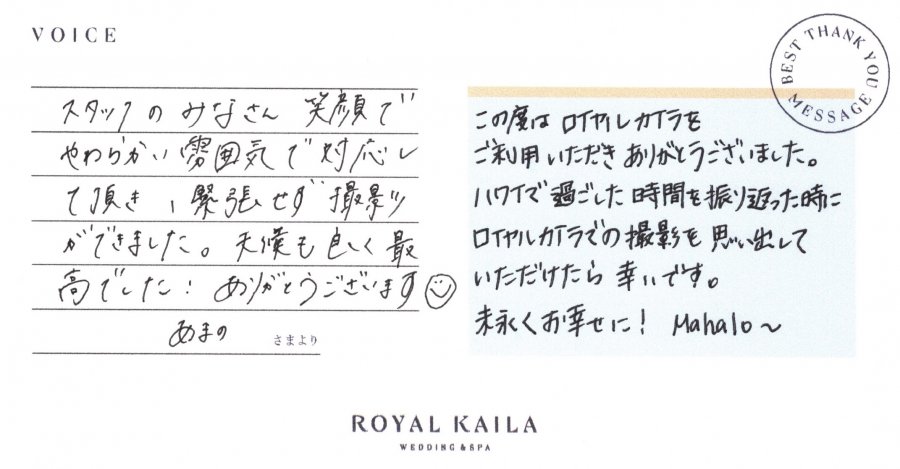 VOICE
BEST THANK YOU MESSAGE
スタッフのみなさん 笑顔で
やわらかい雰囲気で対応し
て頂き、緊張せず撮影
ができました。天候も良く最
高でした! ありがとうございます
あまの さまより
この度は ロイヤルカイラを
ご利用いただき ありがとうございました。
ハワイで過ごした時間を振り返った時に
ロイヤルカイラでの撮影を思い出して
いただけたら 幸いです。
末永くお幸せに! Mahalo~
ROYAL KAILA
WEDDING & SPA